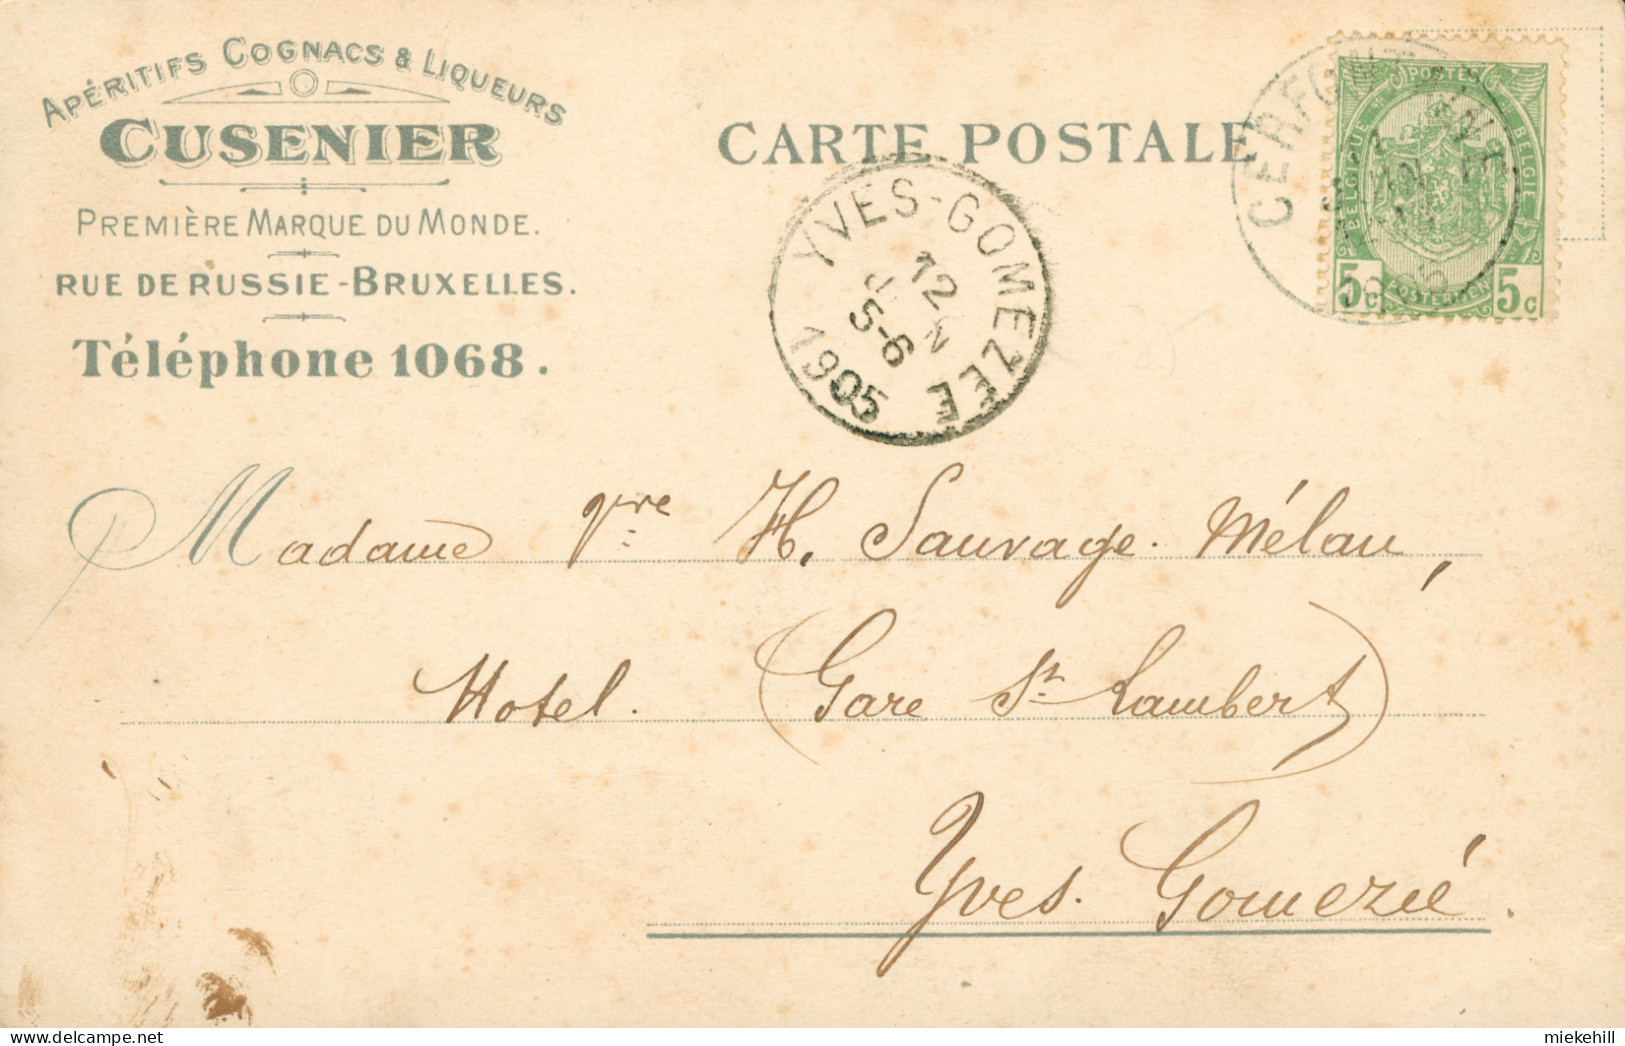 APÉRITIFS COGNACS & LIQUEURS
CUSENIER
PREMIÈRE MARQUE DU MONDE.
RUE DE RUSSIE-BRUXELLES.
Téléphone 1068.
CARTE POSTALE
YVES-GOMEZÉE
12
5-6
1905
POSTES
BELGIQUE
BELGIË
5c POSTERIJEN 5c
1905
Madame Vve H. Sauvage. Mélan,
Hotel. (Gare St Lambert)
Yves. Gomezié.
miekehill